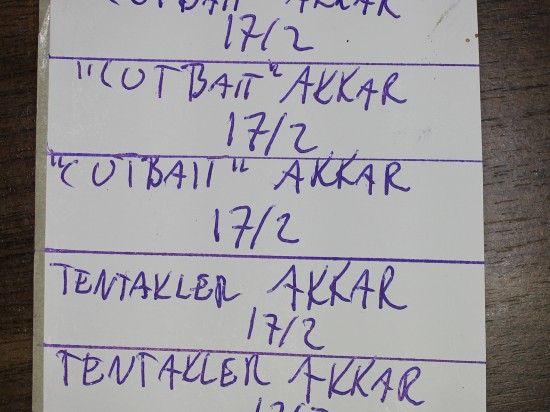 "CUTBAIT" AKKAR
17/2
"CUTBAIT" AKKAR
17/2
"CUTBAIT" AKKAR
17/2
TENTAKLER AKKAR
17/2
TENTAKLER AKKAR
17/2